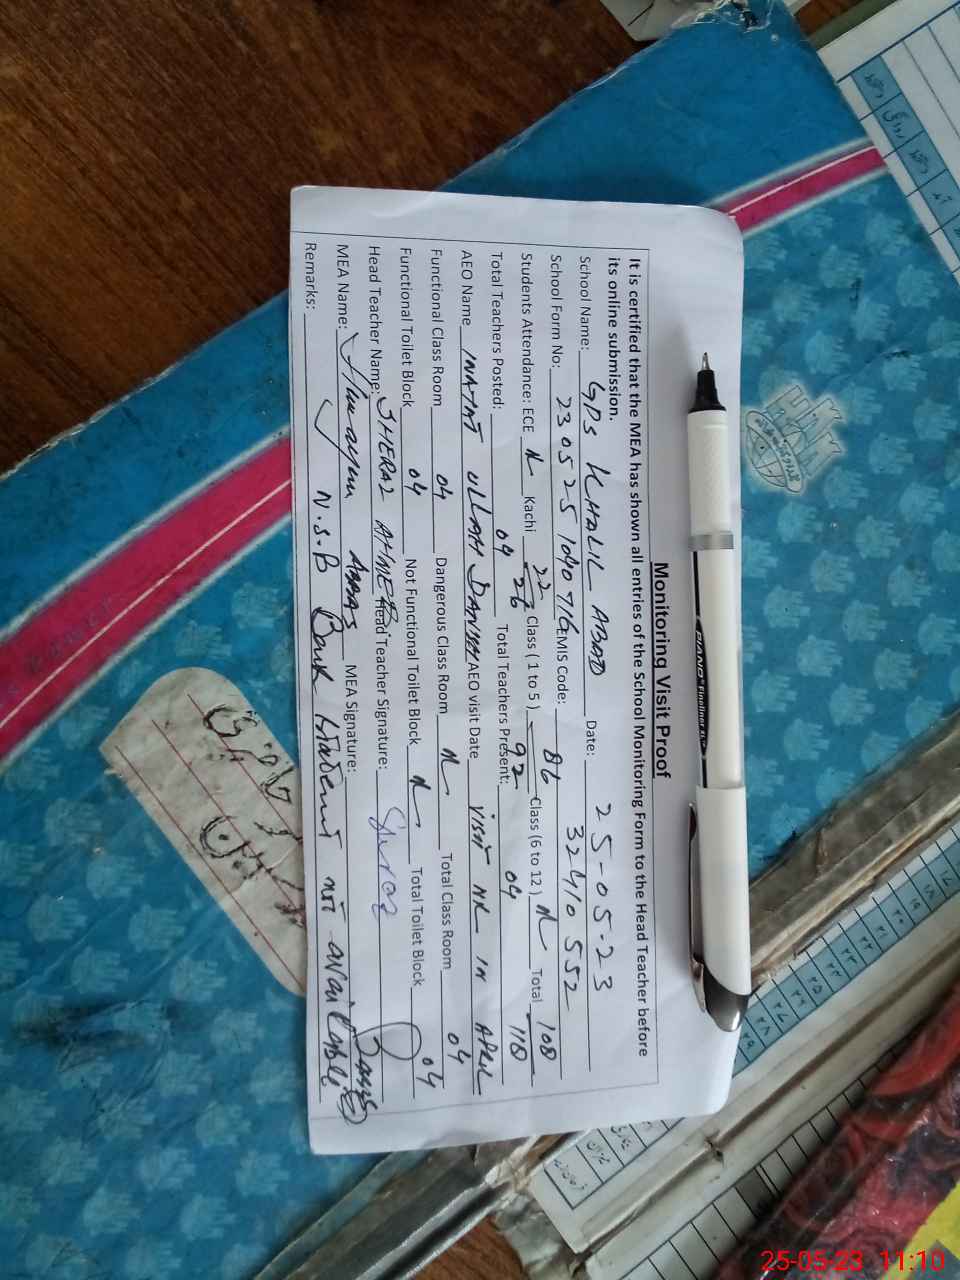 Monitoring Visit Proof
It is certified that the MEA has shown all entries of the School Monitoring Form to the Head Teacher before
its online submission.
School Name: GPS KHALIL ABAD Date: 25-05-23
School Form No: 230525 1040716 EMIS Code: 32410552
Students Attendance: ECE N Kachi 22/26 Class ( 1 to 5 ) 86/92 Class (6 to 12 ) N Total 108/118
Total Teachers Posted: 04 Total Teachers Present: 04
AEO Name INAYAT ULLAH AEO visit Date VISIT NK IN APRIL
Functional Class Room 04 Dangerous Class Room N Total Class Room 04
Functional Toilet Block 04 Not Functional Toilet Block N Total Toilet Block 04
Head Teacher Name: SHERAZ AHMED Head Teacher Signature: Sheraz
MEA Name: Humayun ABBAS MEA Signature:
Remarks: N.S.B Bank Statement not available
PIANO Fineliner
25-05-23 11:10